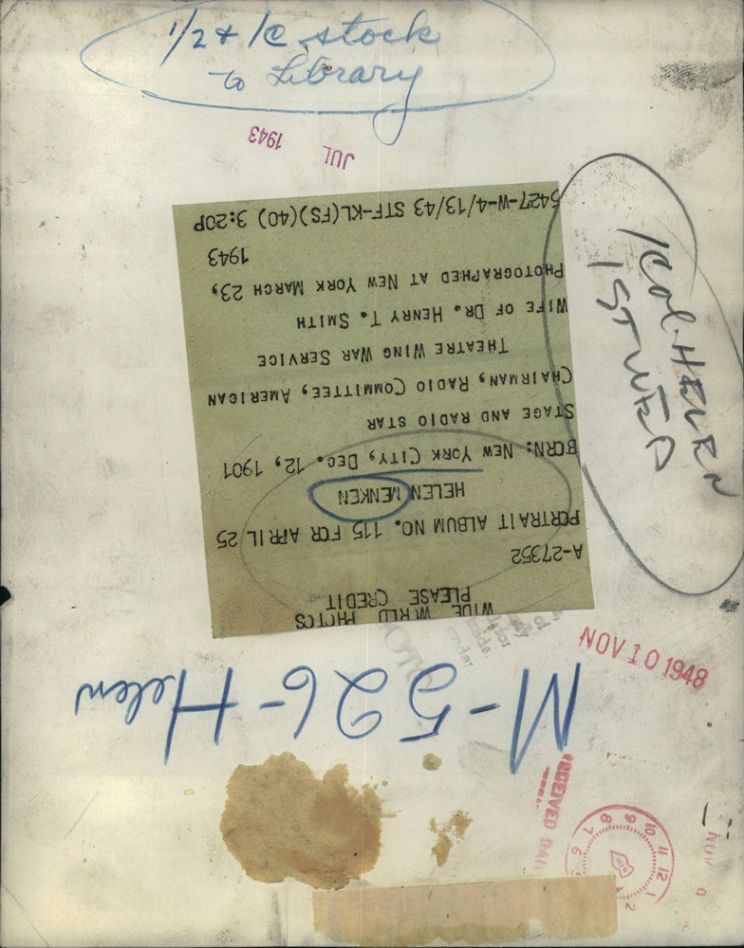 1/2 + 1c stock
to Library
JUL 1943
WIDE WORLD PHOTOS
PLEASE CREDIT
A-27352
PORTRAIT ALBUM NO. 115 FOR APRIL 25
HELEN MENKEN
BORN: NEW YORK CITY, DEC. 12, 1901
STAGE AND RADIO STAR
CHAIRMAN, RADIO COMMITTEE, AMERICAN
THEATRE WING WAR SERVICE
WIFE OF DR. HENRY T. SMITH
PHOTOGRAPHED AT NEW YORK MARCH 23,
1943
5427-W-4/13/43 STF-KL(FS)(40) 3:20P
1 COL. HELEN
1ST WED
NOV 10 1948
M-526-Helen
RECEIVED
6 7 8 9 10 11 12 1 2
NOV